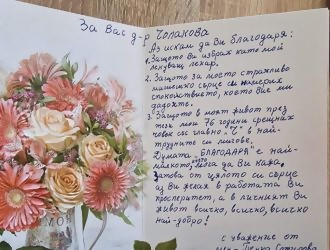 За Вас д-р Чолакова
Аз искам да Ви благодаря:
1. Защото Ви избрах като мой
лекуващ лекар.
2. Защото за моето страхливо
сърце си
спокойствието, което Вие ми
дадохте.
3. Защото в моят живот през
тези мои 76 години срещнах
човек със главно "Ч" в най-
трудните си мигове.
Думата "БЛАГОДАРЯ" е най-
малкото, което мога да Ви кажа,
затова от цялото си сърце
аз Ви желая в работата Ви
просперитет, а в личният Ви
живот всичко, всичко, всичко
най-добро!
с уважение от
Пенка